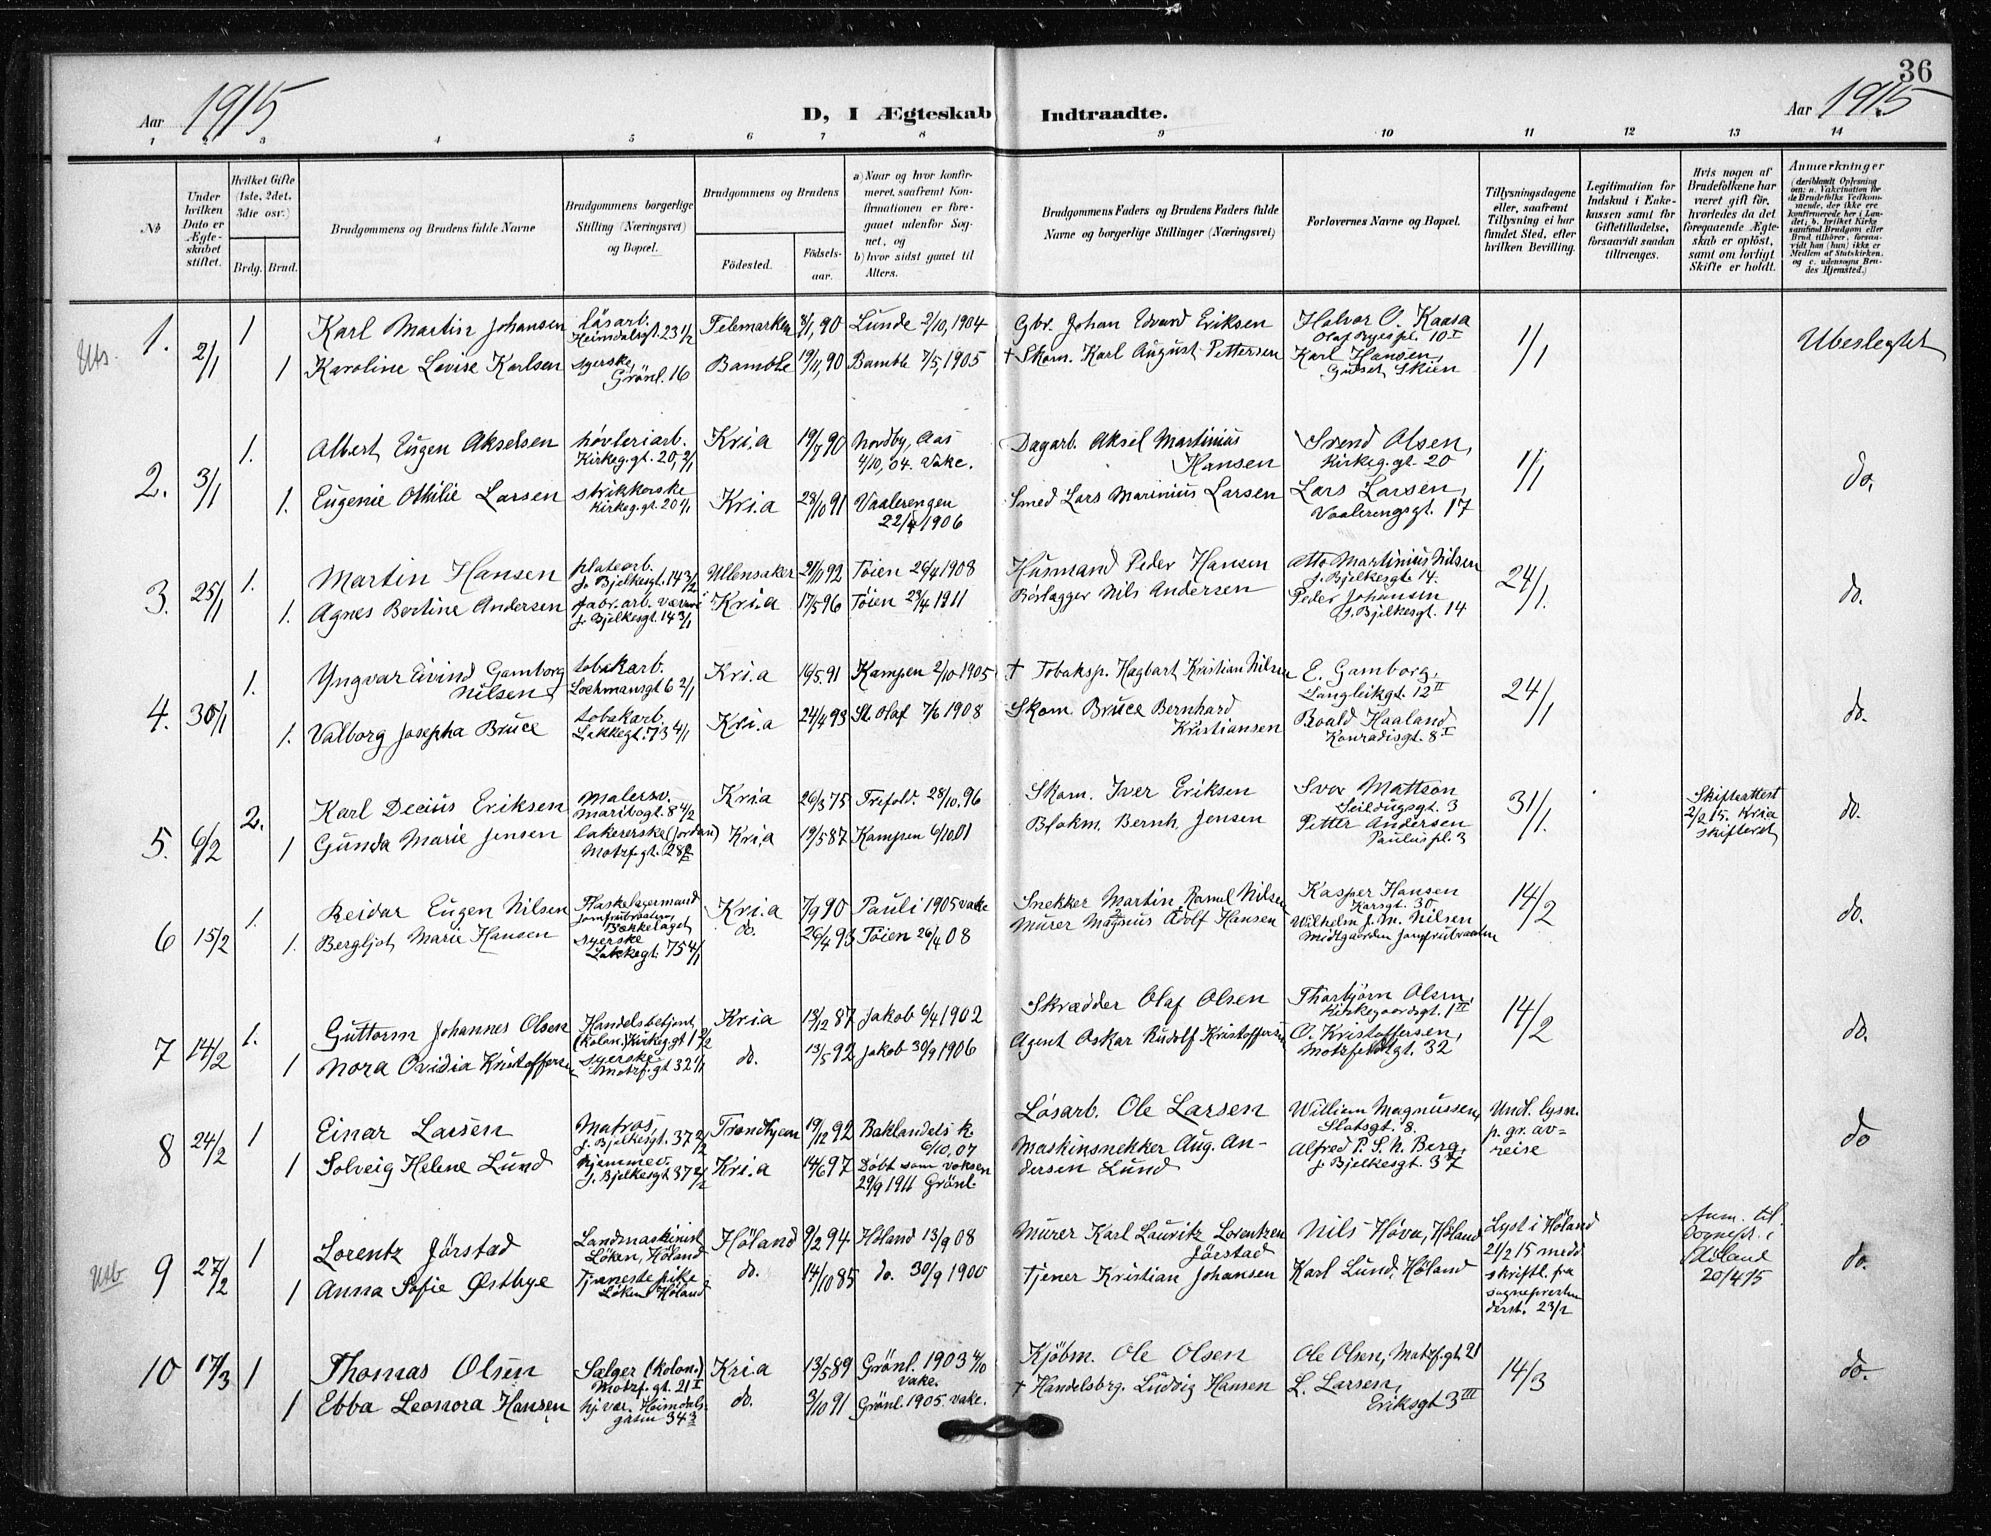 36
Aar 1915
D, I Ægteskab Indtraadte.
Aar 1915
1 2 3 4 5 6 7 8 9 10 11 12 13 14
No
Under hvilken Dato er Ægteskabet stiftet.
Hvilket Gifte (1ste, 2det, 3die osv.)
Brdg. Brud.
Brudgommens og Brudens fulde Navne
Brudgommens borgerlige Stilling (Næringsvei) og Bopæl.
Brudgommens og Brudens
Fødested. Fødselsaar.
a) Naar og hvor konfirmeret, saafremt Konfirmationen er foregaaet udenfor Sognet, og
b) hvor sidst gaaet til Alters.
Brudgommens Faders og Brudens Faders fulde Navne og borgerlige Stillinger (Næringsvei)
Forlovernes Navne og Bopæl.
Tillysningsdagene eller, saafremt Tillysning ei har fundet Sted, efter hvilken Bevilling.
Legitimation for Indskud i Enkekassen samt for Giftetilladelse, forsaavidt saadan tiltrænges.
Hvis nogen af Brudefolkene har været gift før, hvorledes da det foregaaende Ægteskab er opløst, samt om lovligt Skifte er holdt.
Anmærkninger
(deriblandt Oplysning om: a. Vakcination for de Brudefolks Vedkommende, der ikke ere konfirmerede her i Landet; b. hvilket Kirkesamfund Brudgom eller Brud tilhører, forsaavidt han (hun) ikke er Medlem af Statskirken, og c. udensogns Brudes Hjemsted.)
1. 2/1 1 Karl Martin Johansen løsarb. Heimdalsgt. 23 1/2 Telemarken 3/1, 90 Lunde 2/10, 1904 Gbr. Johan Edvard Eriksen Halvor O. Kaasa Olaf Ryespl. 10 I 1/1 Ubeslegtet
1 Karoline Lovise Karlsen syerske, Grønl. 16 Bamble 19/11, 90 Bamble 7/5, 1905 † Skom. Karl August Pettersen Karl Hansen, Skien
2. 3/1 1. Albert Eugen Akselsen høvleriarb. Kirkeg.gt. 20, 2/1 Kri.a 19/7 90 Nordby, Aas 4/10, 04. Vake. Dagarb. Aksel Martinius Hansen Svend Olsen, Kirkeg.gt. 20 1/1 do.
1. Eugenie Othilie Larsen strikkerske Kirkeg.gt. 20 2/1 Kri.a 28/10 91 Vaalerengen 22/4 1906 Smed Lars Marinius Larsen Lars Larsen, Vaalerengsgt. 17
3. 25/1 1. Martin Hansen platearb. J. Bjelkesgt. 14 3/2 Ullensaker 21/11 92 Tøien 26/4 1908 Husmand Peder Hansen Otto Martinius Nilsen J. Bjelkesgt. 14. 24/1. do.
1. Agnes Bertine Andersen fabr.arb. J. Bjelkesgt. 14 3/1 Kri.a 17/5 96 Tøien 23/4 1911 Rørlægger Nils Andersen Peder Johansen J. Bjelkesgt. 14
4. 30/1 1. Yngvar Eivind Gamborg Nilsen tobakarb. Lochmansgt 6 2/1 Kri.a 16/5 91 Kampen 2/10 1905 † Tobaksp. Hagbart Kristian Nilsen E. Gamborg, Langleikgt. 12 II 24/1 do.
1. Valborg Josepha Bruce tobakarb. Lakkegt. 73 4/1 Kri.a 24/4 93 St. Olaf 7/6 1908 Skom. Bruce Bernhard Kristiansen Roald Haaland Konradisgt. 8 I
5. 6/2 2. Karl Decius Eriksen Malersv. Maribogt. 8 4/2 Kria 26/3 75 Trefold. 28/10. 96 Skom. Iver Eriksen Svea Mattson Seildugsgt. 3 31/1. Skifteattest 2/2 15. Kria skifteret do.
1 Gunda Marie Jensen lakererske (Jordan) Motzf.gt. 28 Kri.a 19/5 87 Kampen 6/10 01 Blakm. Bernh. Jensen Petter Andersen Pauluspl. 3
6 15/2 1. Reidar Eugen Nilsen Flaskelagermand Jomfrubraaten, Bækkelaget Kri.a 7/9 90 Pauli 1905 vake Snekker Martin Ramul Nilsen Kasper Hansen Karsgt. 30 14/2 do.
1. Bergljot Marie Hansen Syerske Lakkegt. 75 4/1 do. 26/4 93 Tøien 26/4 08 Murer Magnus Adolf Hansen Wilhelm J. M. Nilsen Midtgaarden Jomfrubraaten
7 14/2 1. Guttorm Johannes Olsen Handelsbetjent (kolon.) Kirkeg.gt 1 2/2 Kria 13/12 87 Jakob 6/4 1902 Skrædder Olaf Olsen Thorbjørn Olsen, Kirkegaardsgt. 1 II 14/2 do.
1 Nora Ovidia Kristoffersen Syerske Motzf.gt 32 1/1 do. 13/5 92 Jakob 30/9 1906 Agent Oskar Rudolf Kristoffersen O. Kristoffersen, Motzfeldtgt. 32
8 24/2 1 Einar Larsen Matros, J. Bjelkesgt. 37 2/2 Trondhjem 19/12 92 Baklandets k. 6/10, 07 Løsarb. Ole Larsen William Magnussen, Slotsgt. 8. Undl. lysn. p. gr. avreise do
1 Solveig Helene Lund hjemmev. J. Bjelkesgt. 37 2/2 Kri.a 14/6 97 Døbt som voksen 29/9 1911 Grønl. Maskinsnekker Aug. Andersen Lund Alfred P. S. N. Berg, J. Bjelkesgt. 37
9 27/2 1 Lorentz Jørstad Landmaskinist Løken, Høland Høland 9/2 94 Høland 13/9 08 Murer Karl Lauritz Lorentzen Jørstad Nils Hova, Høland Lyst i Høland 21/2 15 med skriftl. fra sognepresten derst. 23/2 Anm. til Sognepr. i Høland 20/4 15 do.
1 Anna Sofie Østbye Tjenestepike Løken Høland do. 14/10 85 do. 30/9 1900 Tjener Kristian Johansen Karl Lund, Høland
10 17/3 1 Thomas Olsen Sælger (kolon.) Motzf.gt. 21 I Kri.a 13/5 89 Grønl. 1903 4/10 vake. Kjøbm. Ole Olsen Ole Olsen, Motzf.gt. 21 14/3 do.
1 Ebba Leonora Hansen hj.vær. Heimdalsgaten 34 3 do. 3/10 91 Grønl. 1905 vake. † Handelsbrg. Ludvig Hansen L. Larsen, Eriksgt 3 III